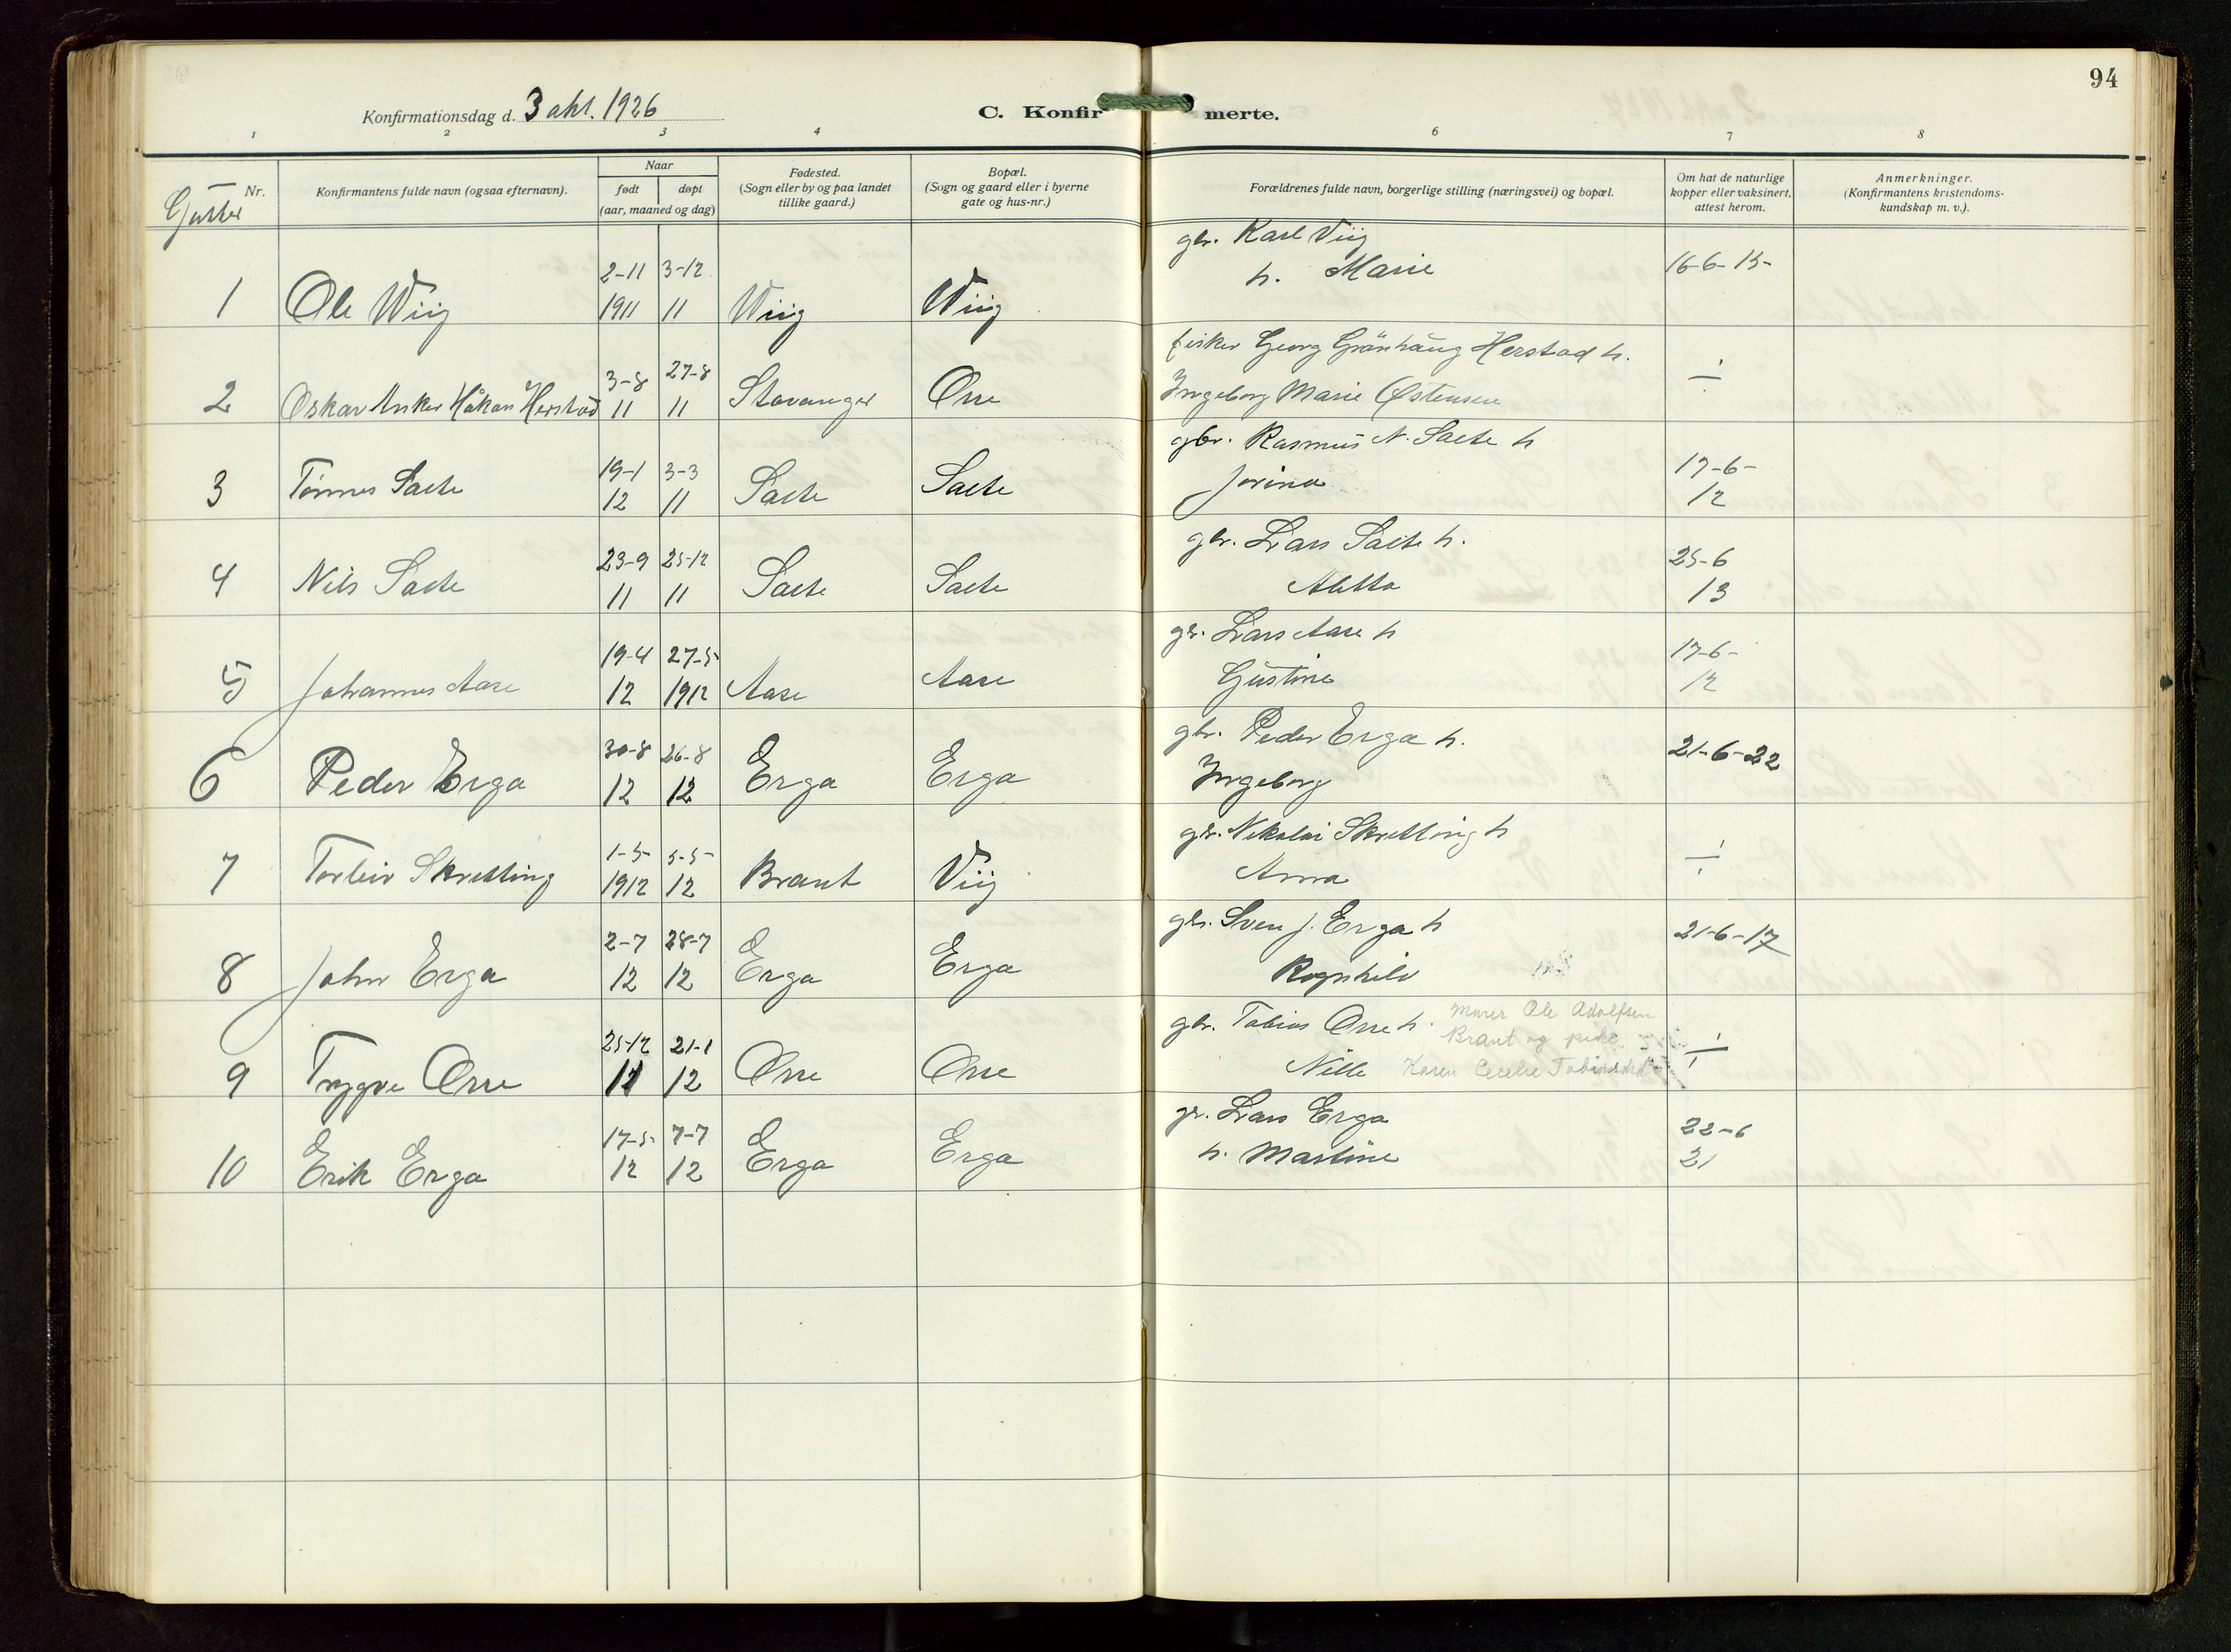 94
Konfirmationsdag d. 3 okt. 1926
C. Konfirmerte.
1 2 3 4 6 7 8
Gutter Nr.
Konfirmantens fulde navn (ogsaa efternavn).
Naar
født døpt
(aar, maaned og dag)
Fødested.
(Sogn eller by og paa landet
tillike gaard.)
Bopæl.
(Sogn og gaard eller i byerne
gate og hus-nr.)
Forældrenes fulde navn, borgerlige stilling (næringsvei) og bopæl.
Om hat de naturlige
kopper eller vaksinert,
attest herom.
Anmerkninger.
(Konfirmantens kristendoms-
kundskap m. v.).
gbr. Karl Viig
2-11 3-12 h. Marie 16-6-15-
1 Ole Wiig 1911 11 Wiig Wiig
fisker Georg Grönhaug Herstad h.
3-8 27-8 ÷
2 Oskar Anker Håkon Herstad 11 11 Stavanger Orre Ingeborg Marie Østensen
gbr. Rasmus N. Salte h
19-1 3-3 17-6-
3 Tönnes Salte 12 11 Salte Salte Jorina 12
gbr. Lars Salte h.
23-9 25-12 25-6
4 Nils Salte 11 11 Salte Salte Aletta 13
gbr. Lars Aase h
19-4 27-5 17-6-
5 Johannes Aase 12 1912 Aase Aase Gustine 12
gbr. Peder Erga h.
30-8 26-8 21-6-22
6 Peder Erga 12 12 Erga Erga Ingeborg
gbr. Nikolai Skretting h
1-5- 5-5- ÷
7 Torleiv Skretting 1912 12 Braut Viig Anna
gbr. Sven J. Erga h
2-7 28-7 21-6-17
8 John Erga 12 12 Erga Erga Ragnhild
gbr. Tobias Orre h. murer Ole Adolfsen
25-12 21-1 Braut og pike ÷
9 Trygve Orre 11 12 Orre Orre Nille Karen Cecelie Tobiasdtr
gbr. Lars Erga
17-5- 7-7 22-6
10 Erik Erga 12 12 Erga Erga h. Martine 21